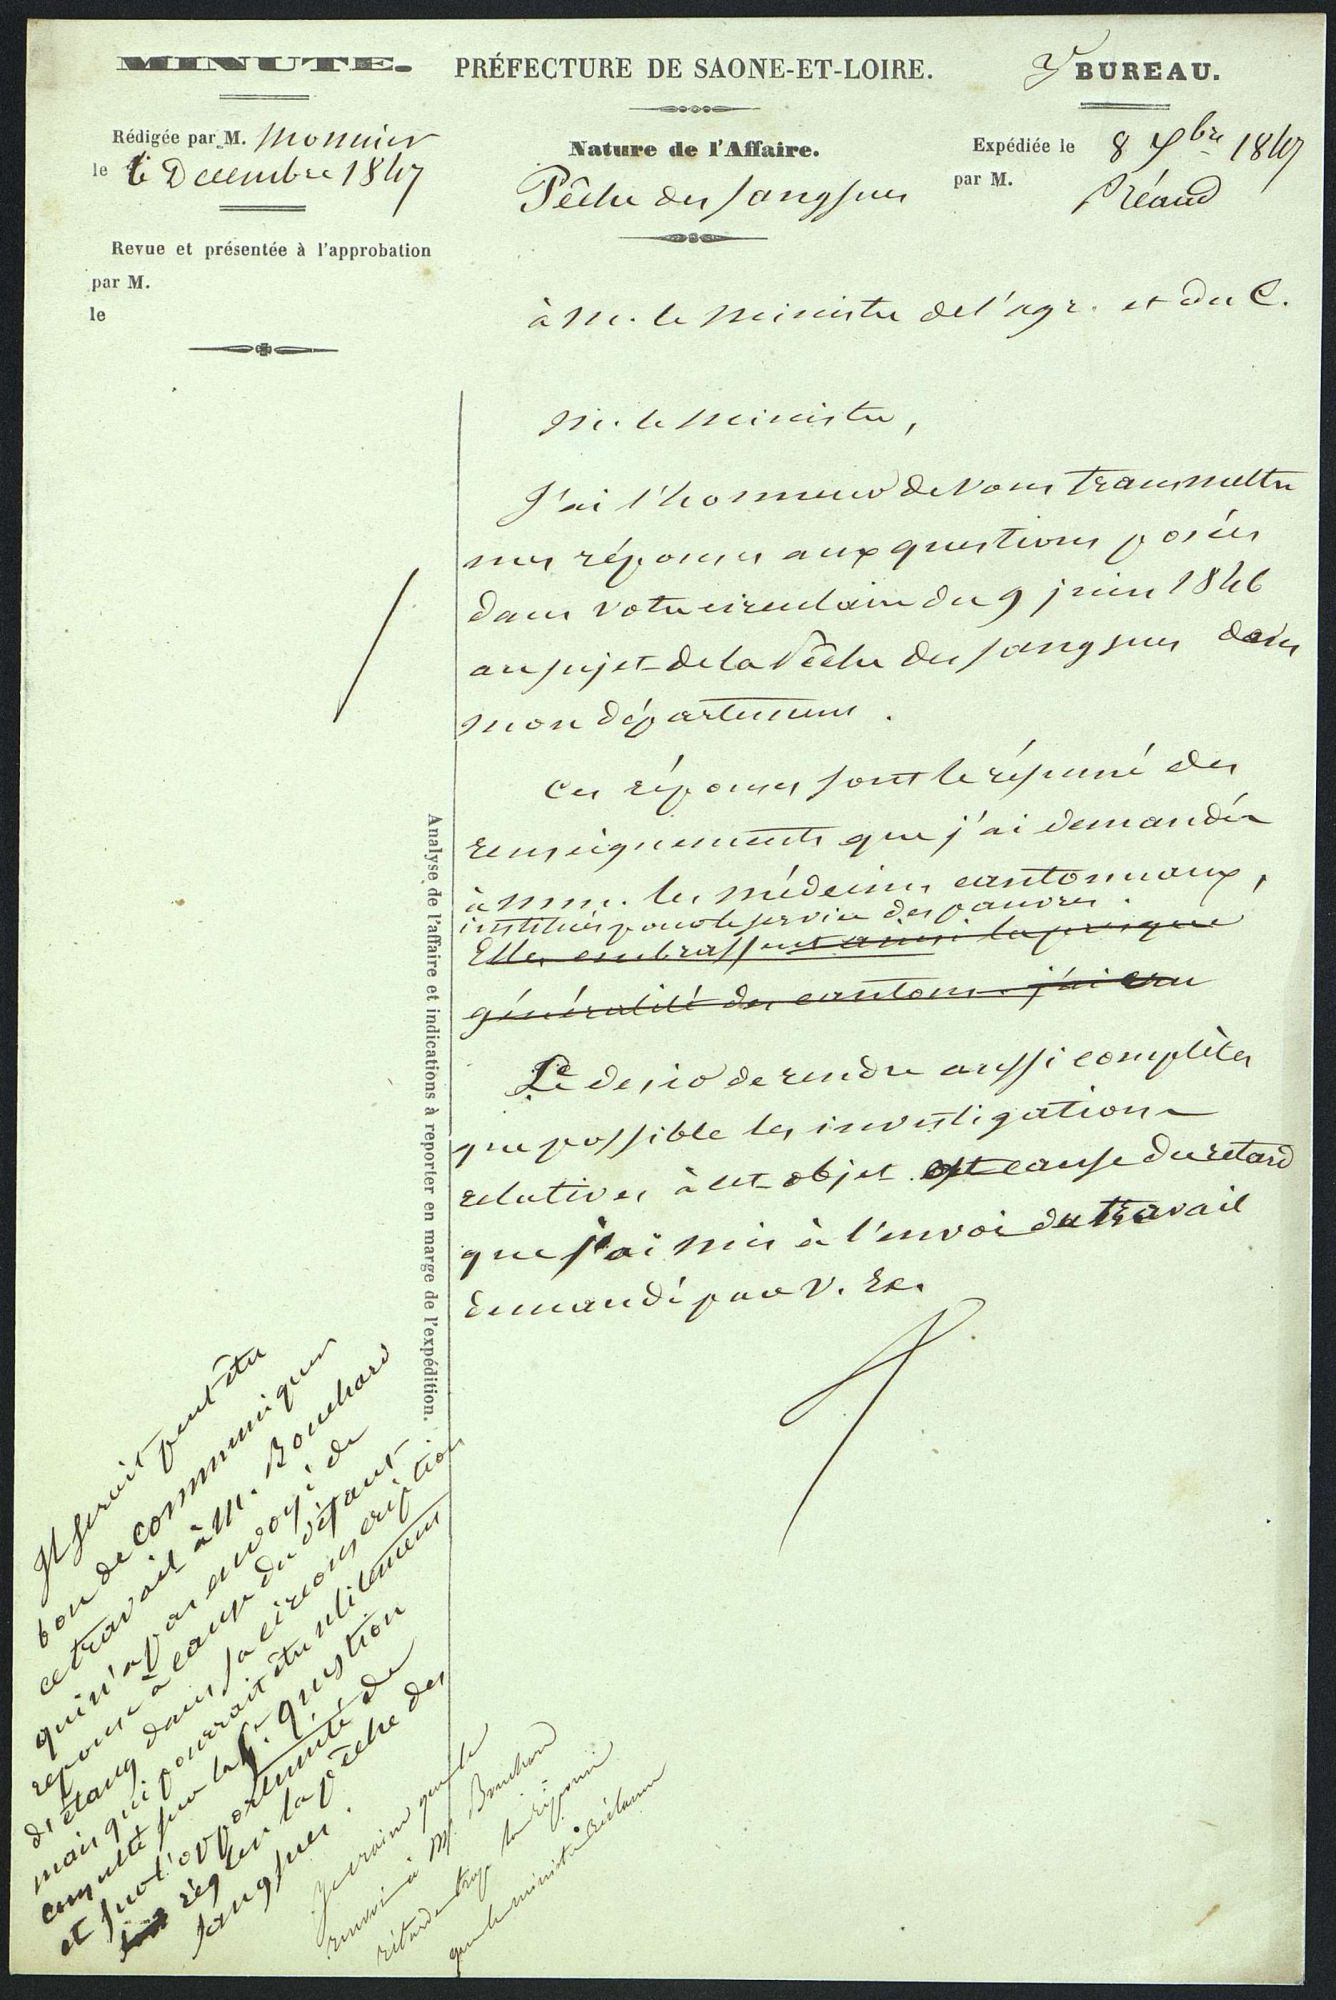 MINUTE.
Rédigée par M. Monnier
le 6 Decembre 1847
Revue et présentée à l'approbation
par M.
le
PRÉFECTURE DE SAONE-ET-LOIRE.
Nature de l'Affaire.
Pêche des sangsues
3e BUREAU.
Expédiée le 8 Xbre 1847
par M. Préaud
à M. le Ministre de l'agr. et du C.
M. le Ministre,
J'ai l'honneur de vous transmettre
mes réponses aux questions posées
dans votre circulaire du 9 juin 1846
au sujet de la Pêche des sangsues dans
mon département.
Ces réponses sont le résumé des
renseignements que j'ai demandés
à MM. les médecins cantonnaux,
institués pour le service des pauvres.
Elles embrassent ainsi la presque
généralité des cantons. j'ai cru
Le desir de rendre aussi complètes
que possible les investigations
relatives à cet objet est cause du retard
que j'ai mis à l'envoi du travail
demandé par V. Ex.
Analyse de l'affaire et indications à reporter en marge de l'expédition.
Il serait peut être
bon de communiquer
ce travail à M. Bouchard
qui n'a pas envoyé de
reponse à cause du défaut
d'étang dans sa circonscription
mais qui pourrait être utilement
consulté sur la 1e question
et sur l'opportunité de
régler la pêche des
sangsues.
Je crains que le
renvoi à M. Bouchard
retarde trop la réponse
que le ministre réclame